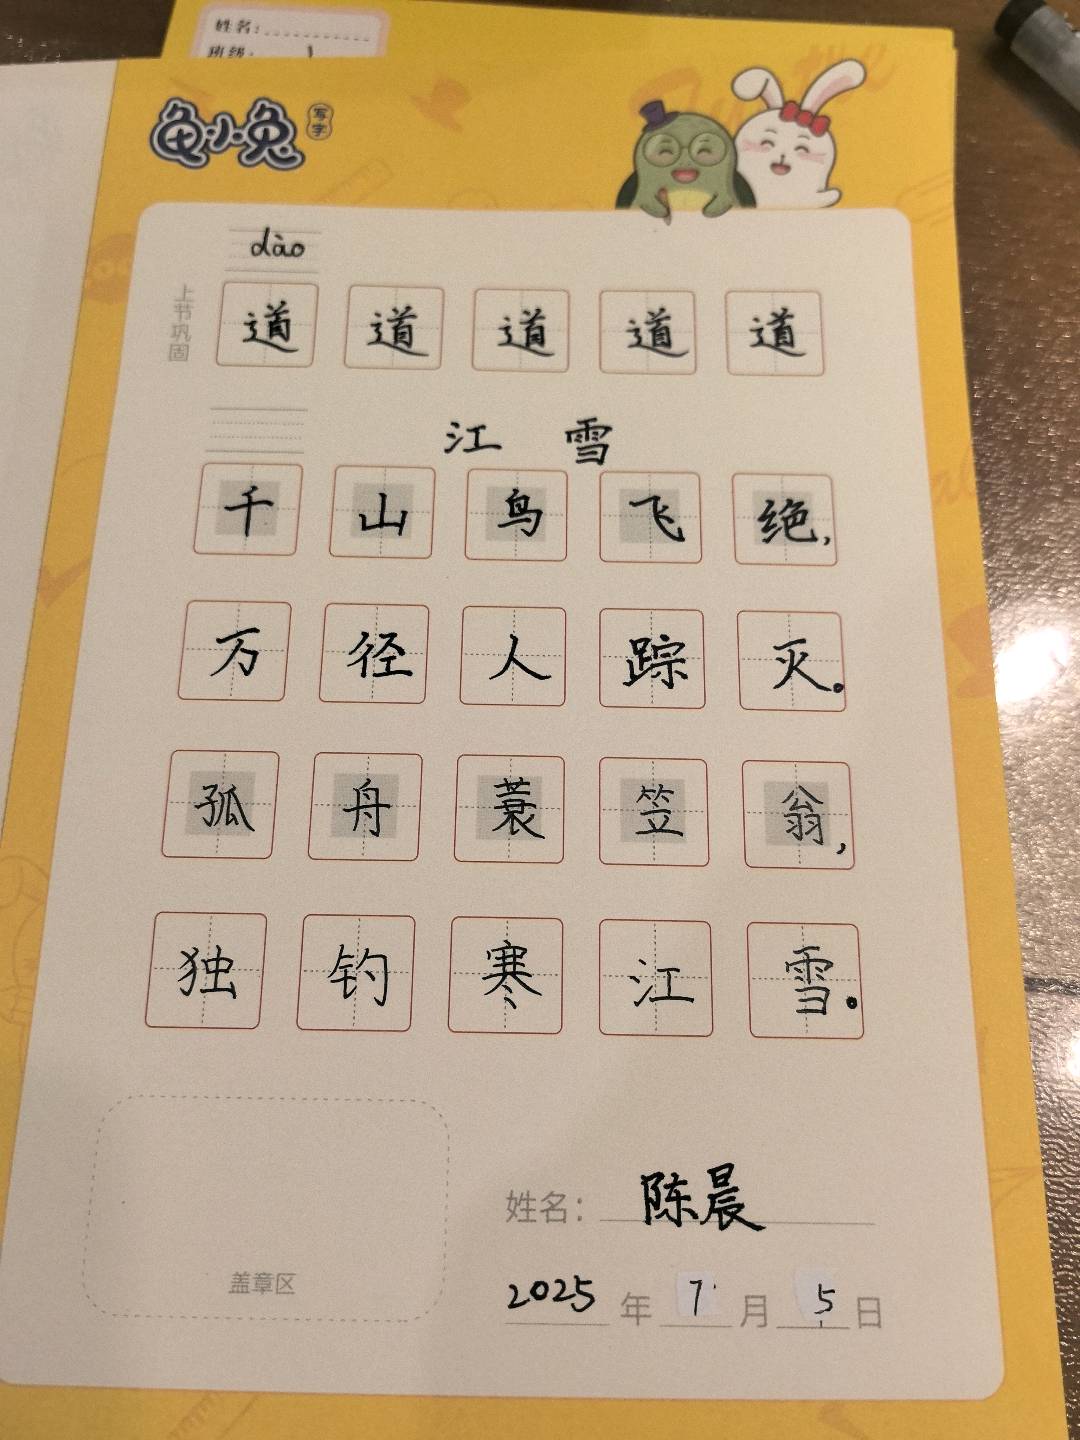 姓名：
班级：
龟小兔 写字
dào
上节巩固
道 道 道 道 道
江 雪
千 山 鸟 飞 绝，
万 径 人 踪 灭。
孤 舟 蓑 笠 翁，
独 钓 寒 江 雪。
姓名： 陈晨
盖章区
2025 年 7 月 5 日